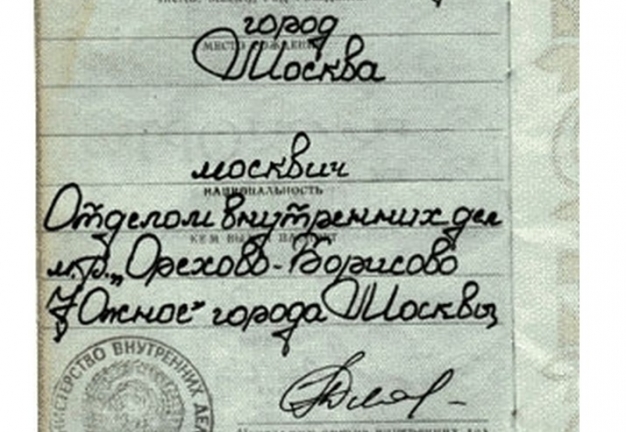 город
МЕСТО РОЖДЕНИЯ
Москва
москвич
НАЦИОНАЛЬНОСТЬ
Отделом внутренних дел
КЕМ ВЫДАН ПАСПОРТ
м.р. „Орехово-Борисово
Южное" города Москвы
МИНИСТЕРСТВО ВНУТРЕННИХ ДЕЛ